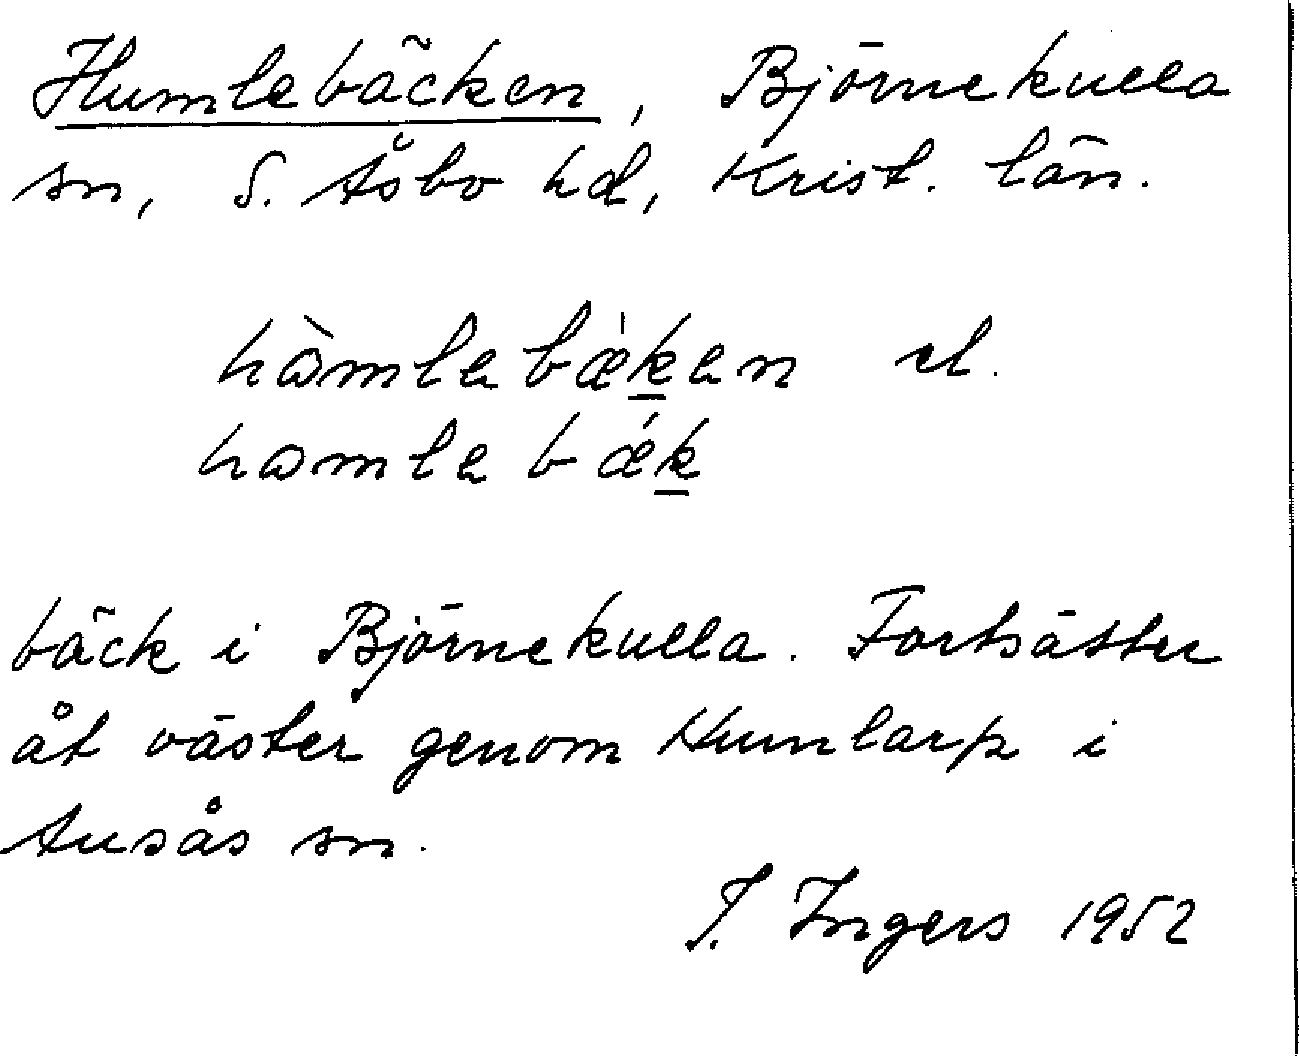 Humlebäcken, Björnekulla
sn, S. Åsbo hd, Krist. län.
hòmlebæ̀ken el.
homlebǽk
bäck i Björnekulla. Fortsätter
åt väster genom Humlarp i
Ausås sn.
I. Ingers 1952